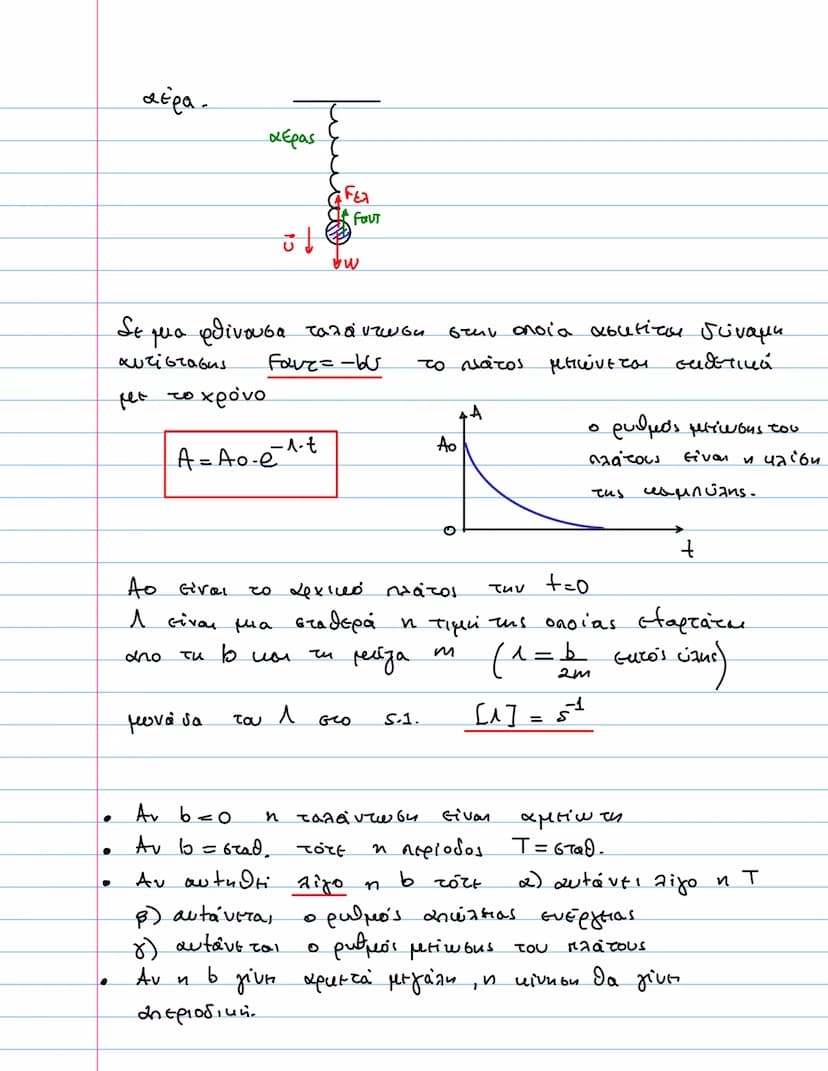 αέρα.
αέρας
Fελ
Fαντ
υ
W
Σε μια φθίνουσα ταλάντωση στην οποία ασκείται δύναμη
αντίστασης Fαντ = -bυ το πλάτος μειώνεται εκθετικά
με το χρόνο
A = Ao·e^-Λ·t
A
Ao
O
t
ο ρυθμός μείωσης του
πλάτους είναι η κλίση
της καμπύλης.
Ao είναι το αρχικό πλάτος την t=0
Λ είναι μια σταθερά η τιμή της οποίας εξαρτάται
απο τη b και τη μάζα m (Λ = b/2m εκτός ύλης)
μονάδα του Λ στο S.I. [Λ] = s^-1
• Αν b=0 η ταλάντωση είναι αμείωτη
• Αν b = σταθ. τότε η περίοδος T = σταθ.
• Αν αυξηθεί λίγο η b τότε α) αυξάνει λίγο η T
β) αυξάνεται ο ρυθμός απώλειας ενέργειας
γ) αυξάνεται ο ρυθμός μείωσης του πλάτους
• Αν η b γίνει αρκετά μεγάλη, η κίνηση θα γίνει
απεριοδική.